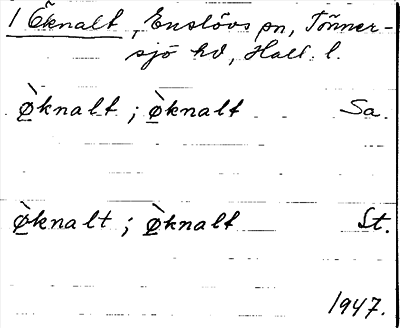 1 Öknalt, Enslövs sn, Tönner-
sjö hd, Hall. l.
ø̀knalt ; ø̀knalt Sa.
ø̀knalt ; ø̀knalt St.
1947.